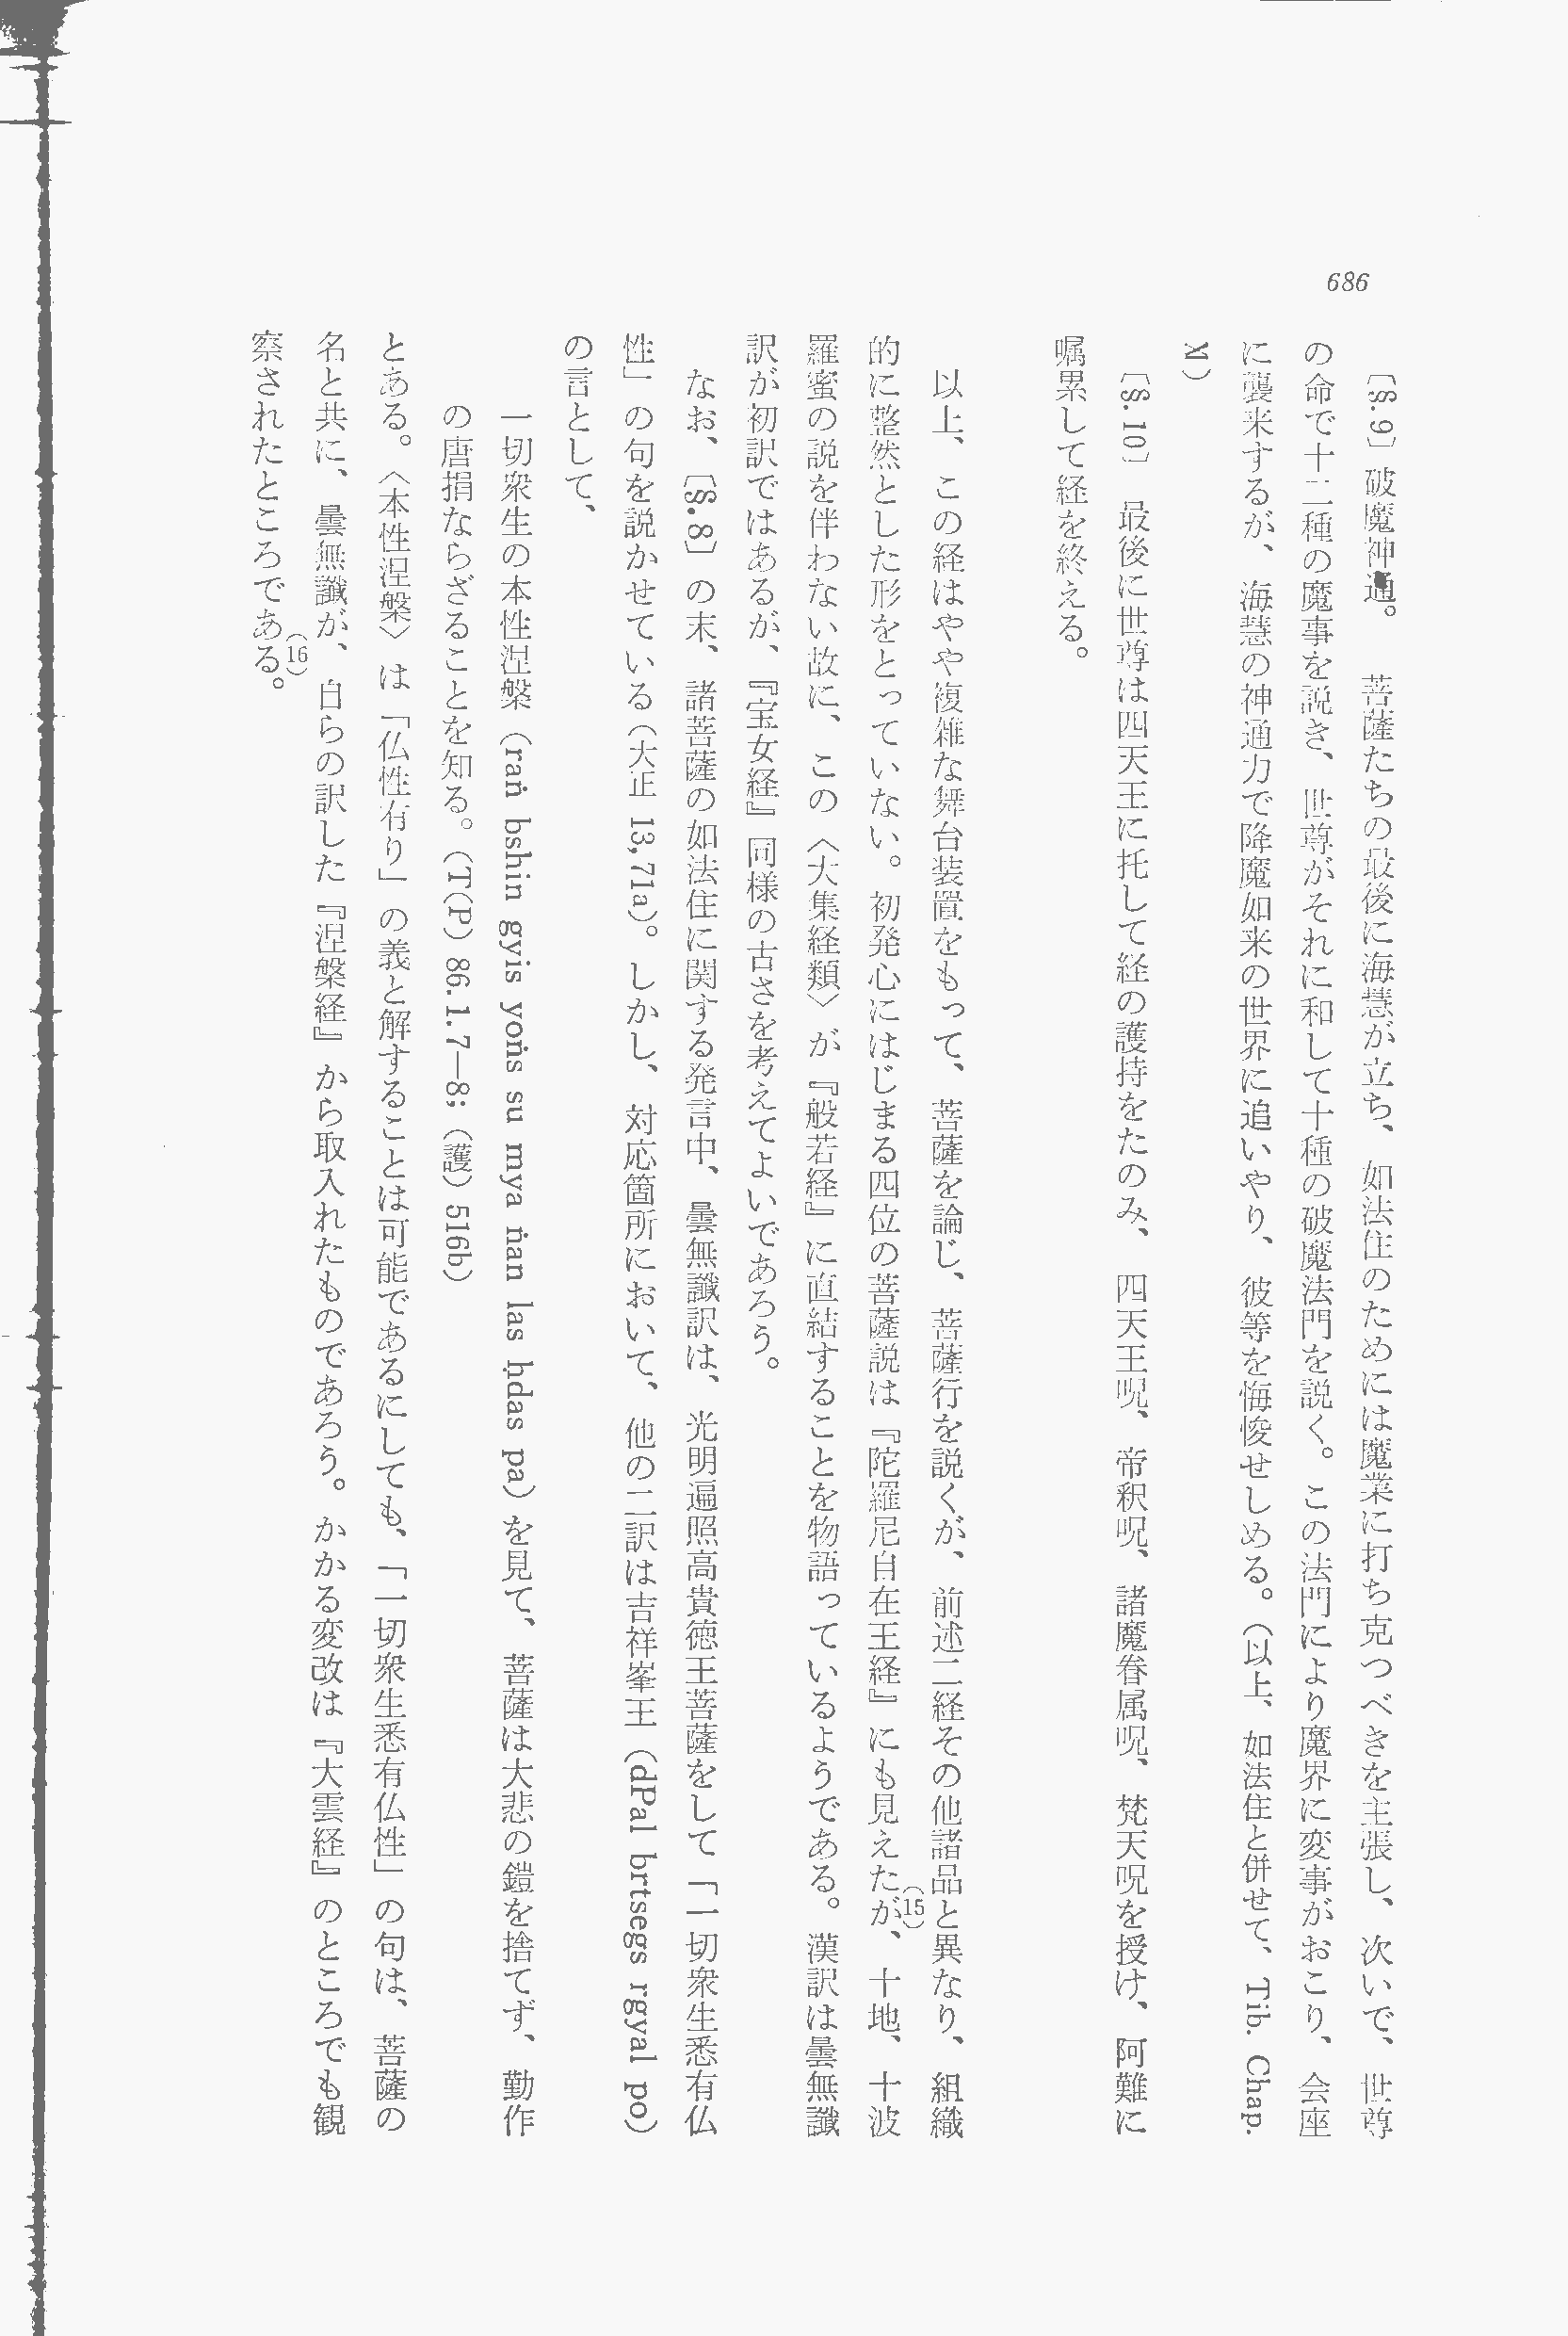 686
〔§.9〕破魔神通。　菩薩たちの最後に海慧が立ち、如法住のためには魔業に打ち克つべきを主張し、次いで、世尊
の命で十二種の魔事を説き、世尊がそれに和して十種の破魔法門を説く。この法門により魔界に変事がおこり、会座
に襲来するが、海慧の神通力で降魔如来の世界に追いやり、彼等を悔悛せしめる。（以上、如法住と併せて、Tib. Chap.
XI）
〔§.10〕　最後に世尊は四天王に托して経の護持をたのみ、四天王呪、帝釈呪、諸魔眷属呪、梵天呪を授け、阿難に
嘱累して経を終える。
以上、この経はやや複雑な舞台装置をもって、菩薩を論じ、菩薩行を説くが、前述二経その他諸品と異なり、組織
的に整然とした形をとっていない。初発心にはじまる四位の菩薩説は『陀羅尼自在王経』にも見えたが、(15)十地、十波
羅蜜の説を伴わない故に、この〈大集経類〉が『般若経』に直結することを物語っているようである。漢訳は曇無讖
訳が初訳ではあるが、『宝女経』同様の古さを考えてよいであろう。
なお、〔§.8〕の末、諸菩薩の如法住に関する発言中、曇無讖訳は、光明遍照高貴徳王菩薩をして「一切衆生悉有仏
性」の句を説かせている（大正 13,71a）。しかし、対応箇所において、他の二訳は吉祥峯王（dPal brtsegs rgyal po）
の言として、
一切衆生の本性涅槃（raṅ bshin gyis yoṅs su mya ṅan las ḥdas pa）を見て、菩薩は大悲の鎧を捨てず、勤作
の唐捐ならざることを知る。（T(P) 86.1.7—8;（護）516b）
とある。〈本性涅槃〉は「仏性有り」の義と解することは可能であるにしても、「一切衆生悉有仏性」の句は、菩薩の
名と共に、曇無讖が、自らの訳した『涅槃経』から取入れたものであろう。かかる変改は『大雲経』のところでも観
察されたところである。(16)